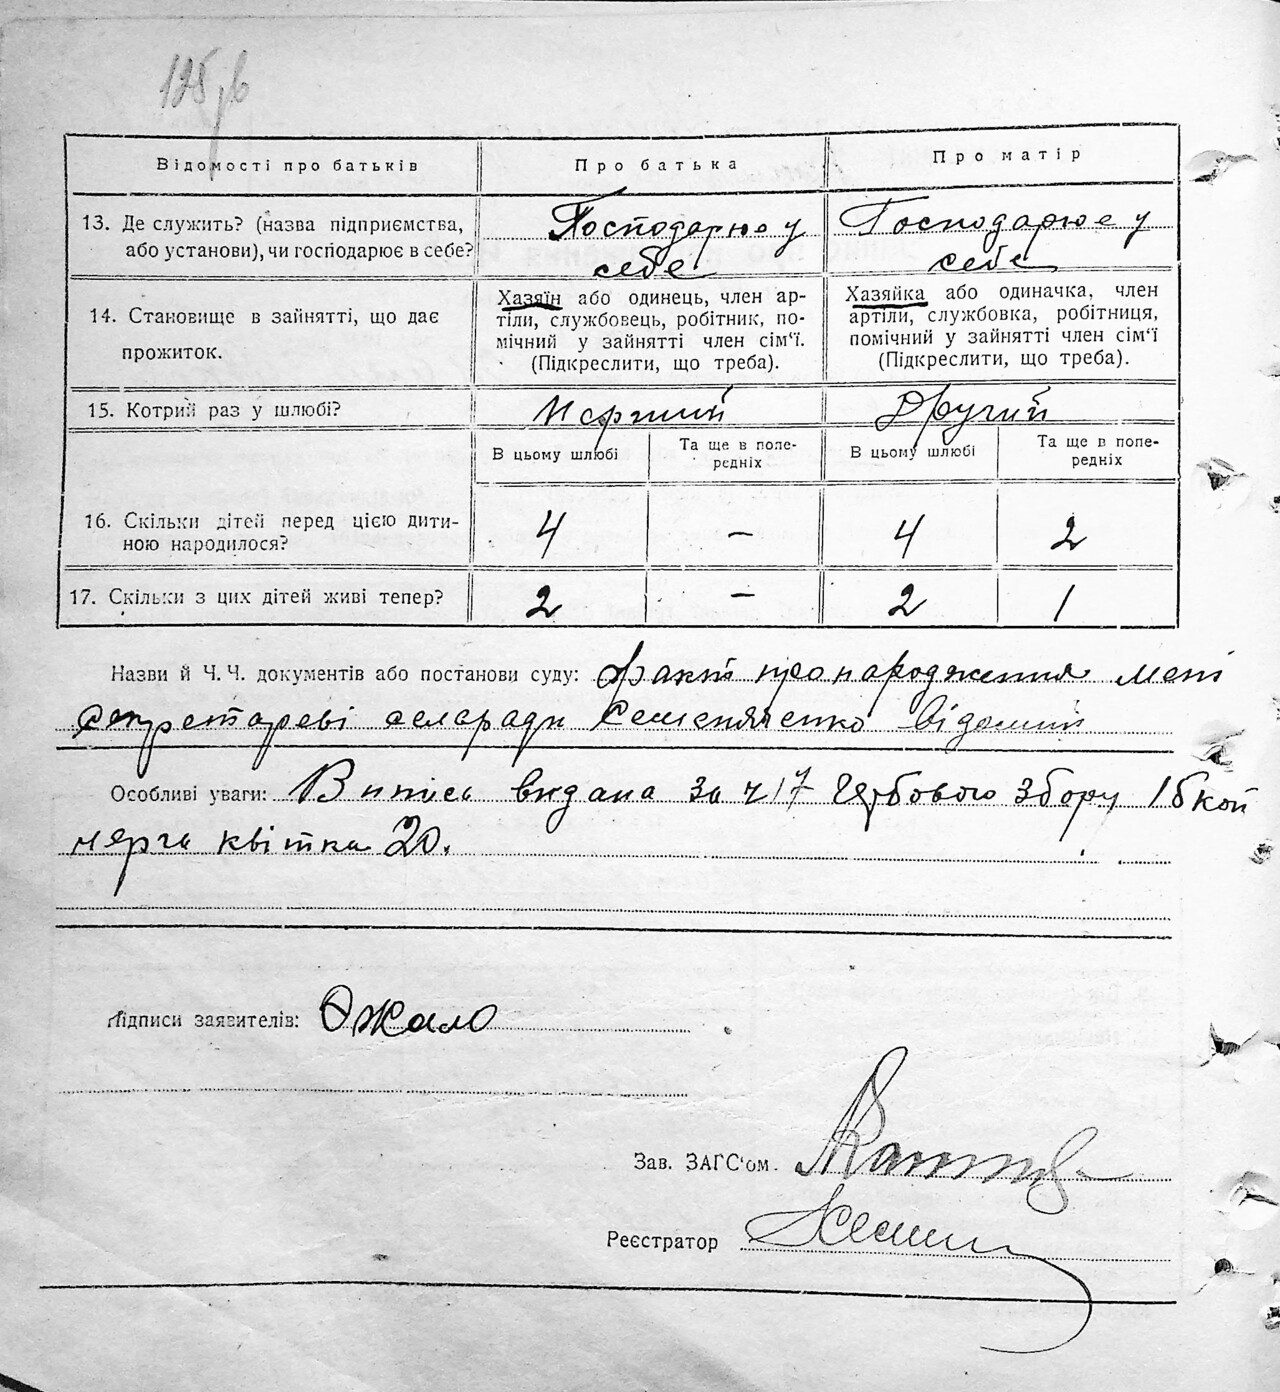 125
Відомості про батьків
Про батька
Про матір
13. Де служить? (назва підприємства,
або установи), чи господарює в себе?
Господарює у
себе
Господарює у
себе
14. Становище в зайнятті, що дає
прожиток.
Хазяїн або одинець, член ар-
тіли, службовець, робітник, по-
мічний у зайнятті член сім'ї.
(Підкреслити, що треба).
Хазяйка або одиначка, член
артіли, службовка, робітниця,
помічний у зайнятті член сім'ї
(Підкреслити, що треба).
15. Котрий раз у шлюбі?
Перший
Другий
В цьому шлюбі
Та ще в попе-
редніх
В цьому шлюбі
Та ще в попе-
редніх
16. Скільки дітей перед цією дити-
ною народилося?
4
—
4
2
17. Скільки з цих дітей живі тепер?
2
—
2
1
Назви й Ч. Ч. документів або постанови суду: Факт про народження мені
секретареві сельради відомий
Особливі уваги: Випись видана за ч 17 Гербового збору 15 коп
квітка 20.
Підписи заявителів: Ожало
Зав. ЗАГС'ом.
Реєстратор